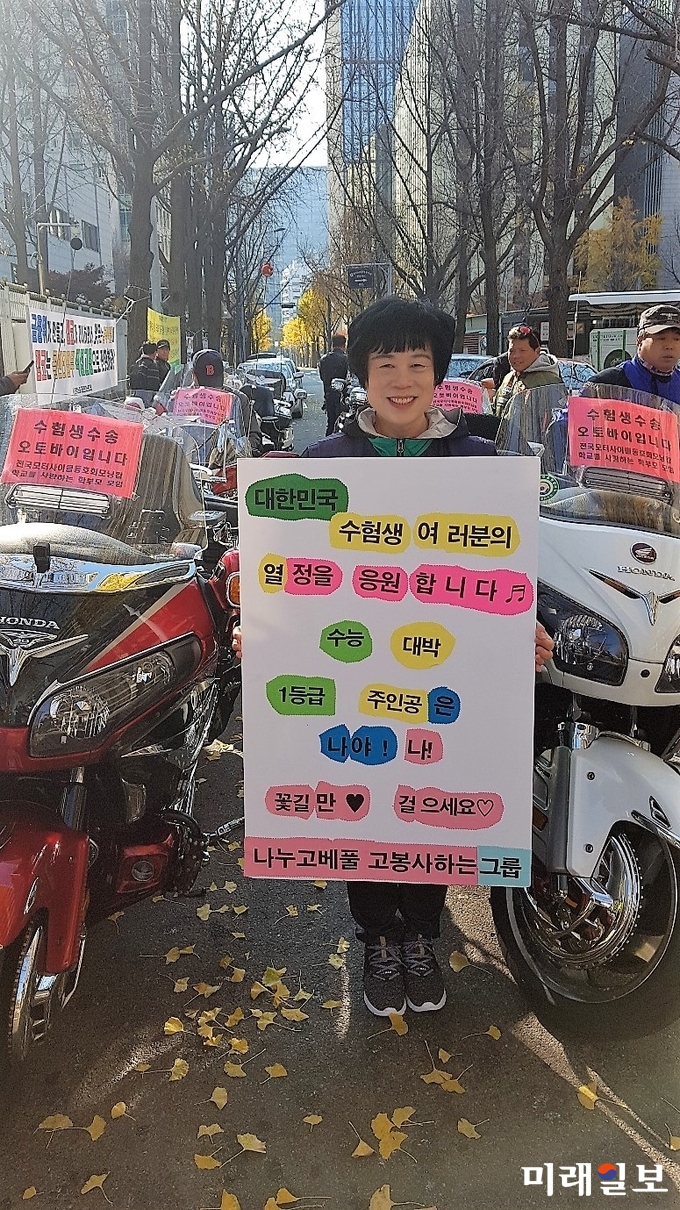 수험생수송
오토바이입니다
전국모터사이클동호회모닝캄
학교를 사랑하는 학부모 모임
수험생수송
오토바이입니다
수험생수송
오토바이입니다
전국모터사이클동호회모닝캄
학교를 사랑하는 학부모 모임
대한민국
수험생 여 러분의
열 정을 응원 합 니 다 ♬
수능 대박
1등급 주인공 은
나야 ! 나!
꽃길 만 ♥ 걸 으세요♡
나누고베풀 고봉사하는그룹
HONDA
HONDA
B
미래일보